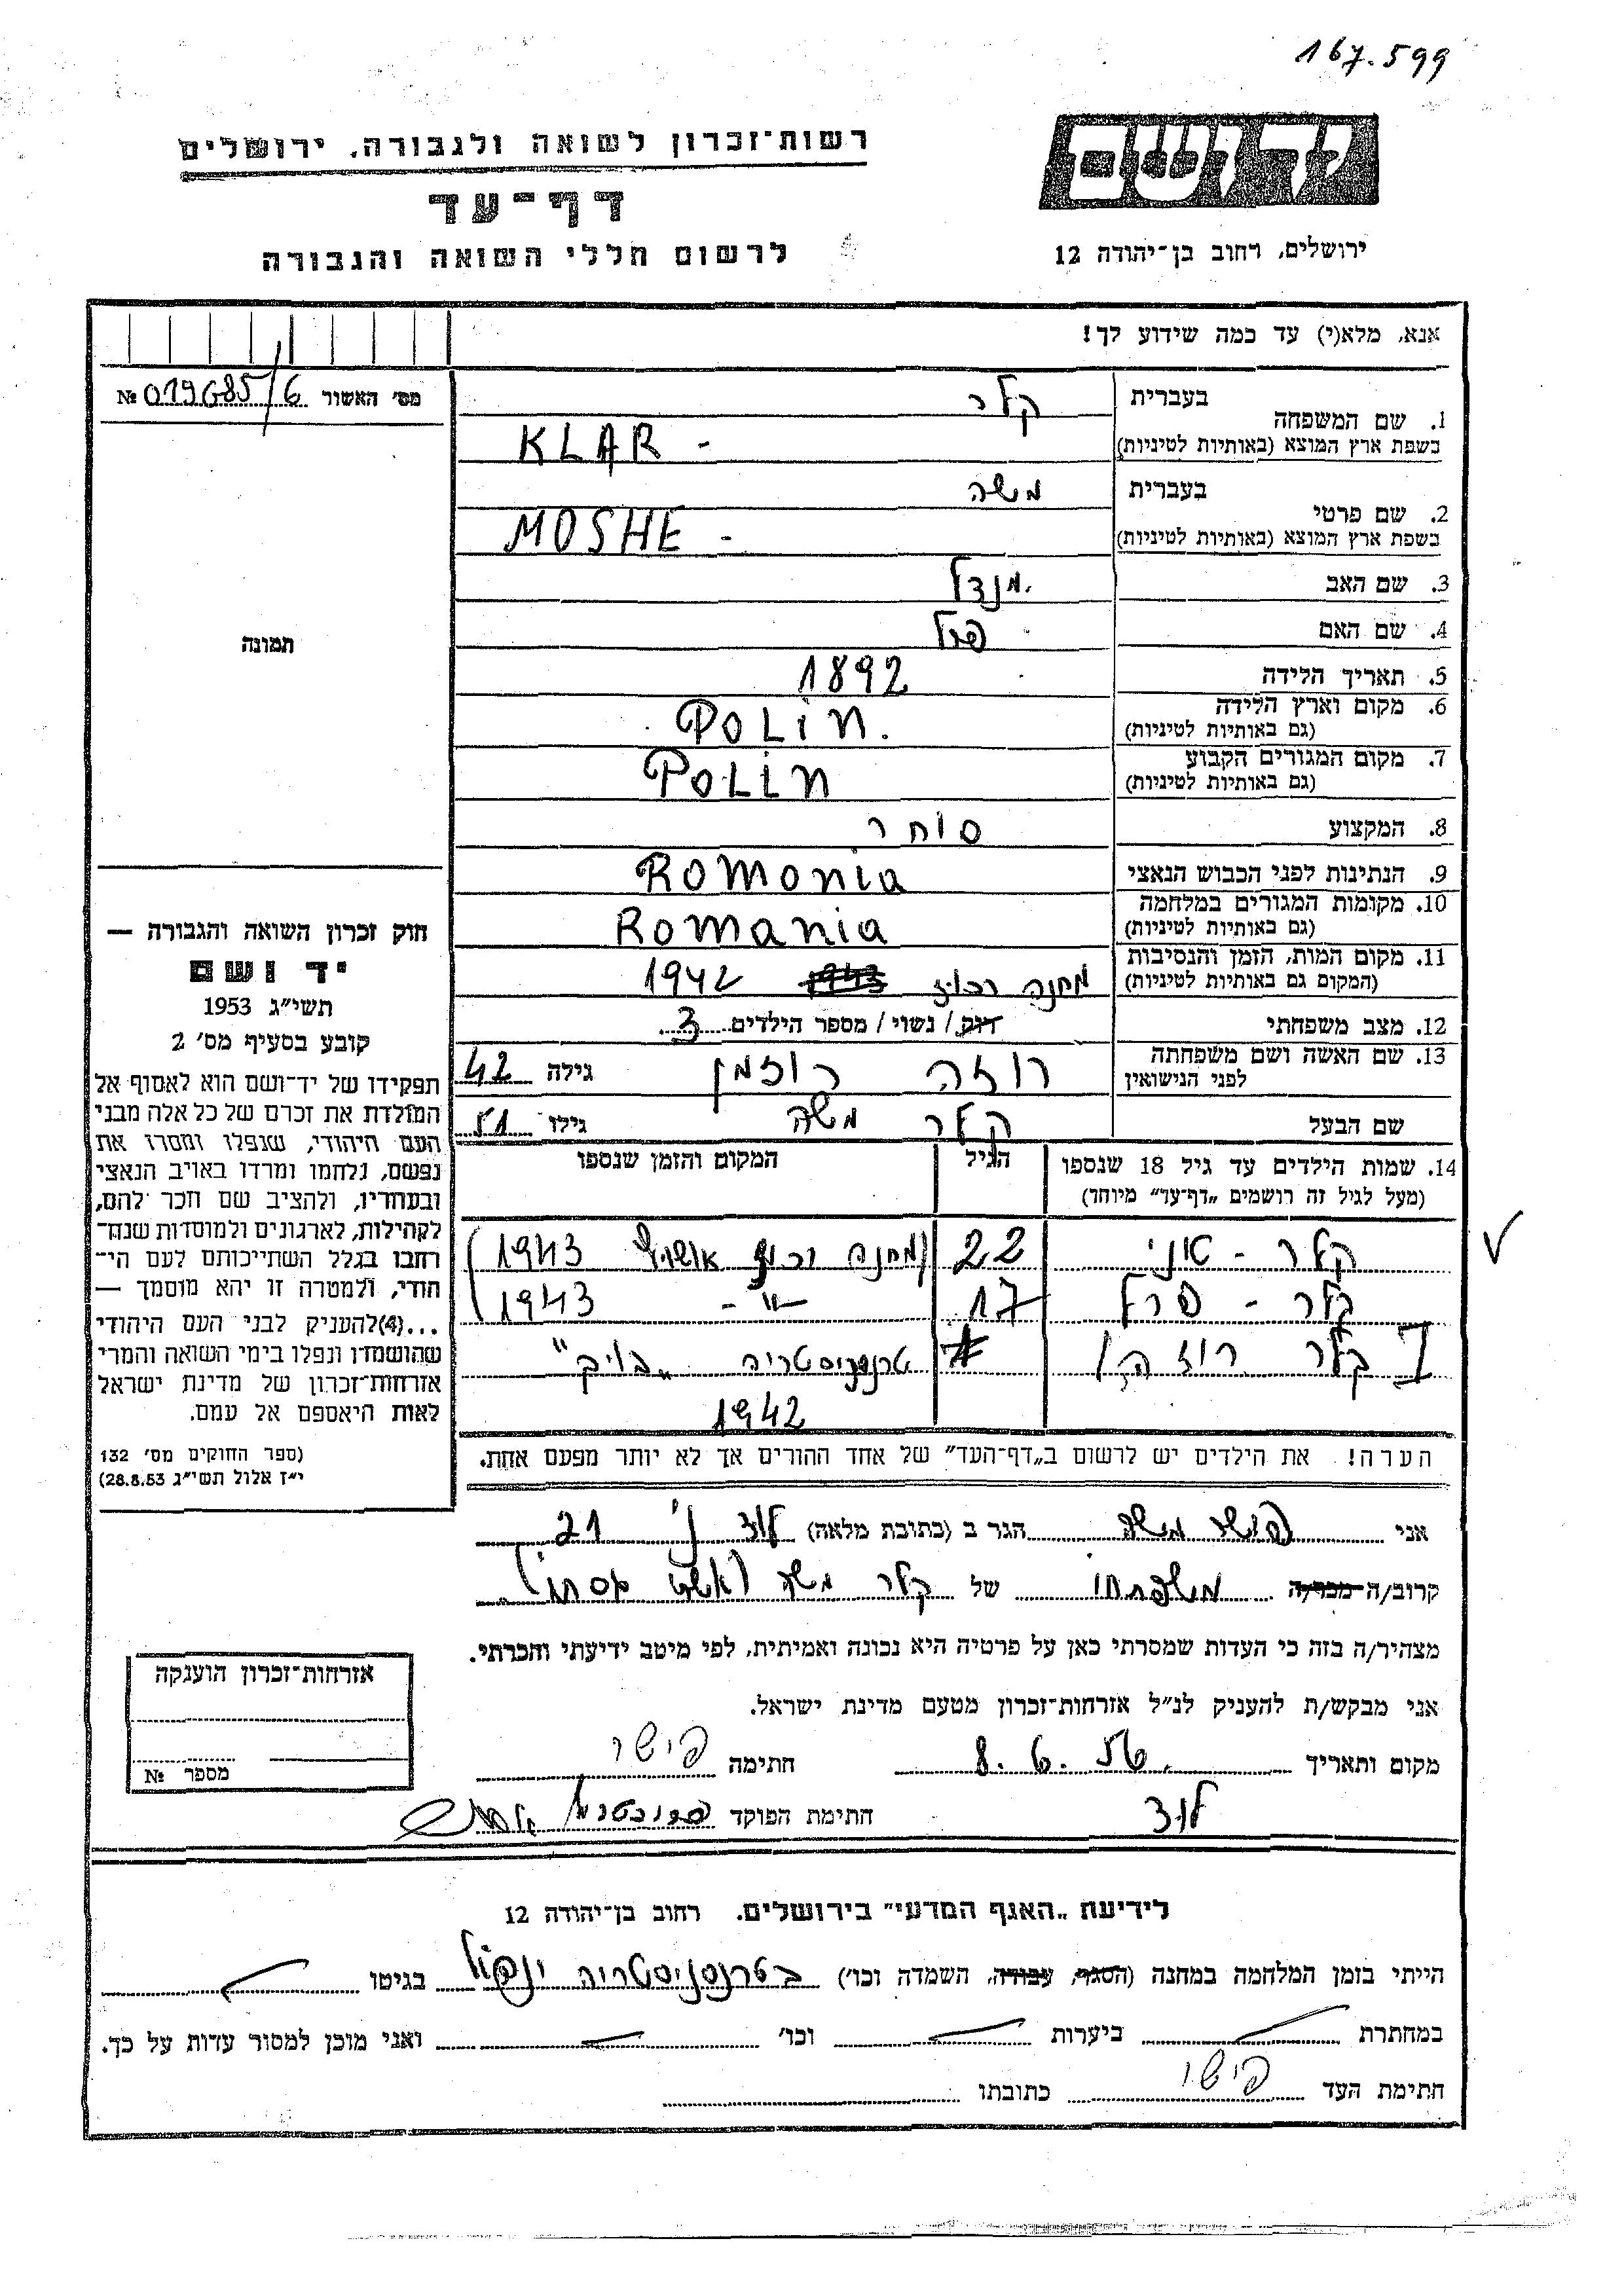 167.599
רשות־זכרון לשואה ולגבורה, ירושלים
יד ושם
דף־עד
לרשום חללי השואה והגבורה
ירושלים, רחוב בן־יהודה 12
אנא, מלא(י) עד כמה שידוע לך!
מס׳ האשור № 019685/6
תמונה
1. שם המשפחה
בעברית קלר
בשפת ארץ המוצא (באותיות לטיניות) KLAR -
2. שם פרטי
בעברית משה
בשפת ארץ המוצא (באותיות לטיניות) MOSHE -
3. שם האב מנדל
4. שם האם פרל
5. תאריך הלידה 1892
6. מקום וארץ הלידה (גם באותיות לטיניות) POLiN.
7. מקום המגורים הקבוע (גם באותיות לטיניות) POLiN
8. המקצוע סוחר
9. הנתינות לפני הכבוש הנאצי ROMONIA
10. מקומות המגורים במלחמה (גם באותיות לטיניות) ROMANIA
11. מקום המות, הזמן והנסיבות (המקום גם באותיות לטיניות) מחנה רכוז 1943 1942
12. מצב משפחתי רוק / נשוי / מספר הילדים 3
13. שם האשה ושם משפחתה לפני הנישואין רוזה רוזמן גילה 42
שם הבעל קלר משה גילו 51
14. שמות הילדים עד גיל 18 שנספו (מעל לגיל זה רושמים „דף־עד״ מיוחד)
הגיל
המקום והזמן שנספו
קלר - טוני 22 (מחנה רכוז אושויץ 1943)
קלר - פרל 17 -״- 1943)
קלר רוזה טרנסניסטריה
1942
הערה! את הילדים יש לרשום ב„דף־העד״ של אחד ההורים אך לא יותר מפעם אחת.
חוק זכרון השואה והגבורה —
יד ושם
תשי״ג 1953
קובע בסעיף מס׳ 2
תפקידו של יד־ושם הוא לאסוף אל
המולדת את זכרם של כל אלה מבני
העם היהודי, שנפלו ומסרו את
נפשם, נלחמו ומרדו באויב הנאצי
ובעוזריו, ולהציב שם וזכר להם,
לקהילות, לארגונים ולמוסדות שנח־
רבו בגלל השתייכותם לעם הי־
הודי, ולמטרה זו יהא מוסמך —
...(4)להעניק לבני העם היהודי
שהושמדו ונפלו בימי השואה והמרי
אזרחות־זכרון של מדינת ישראל
לאות היאספם אל עמם.
(ספר החוקים מס׳ 132
י״ז אלול תשי״ג 28.8.53)
אני פישר משה הגר ב (כתובת מלאה) לוד 21
קרוב/ה מכר/ה משפחתו של קלר משה
מצהיר/ה בזה כי העדות שמסרתי כאן על פרטיה היא נכונה ואמיתית, לפי מיטב ידיעתי והכרתי.
אני מבקש/ת להעניק לנ״ל אזרחות־זכרון מטעם מדינת ישראל.
מקום ותאריך 8.6.56 חתימה פישר
לוד
חתימת הפוקד
אזרחות־זכרון הוענקה
מספר №
לידיעת „האגף המדעי״ בירושלים. רחוב בן־יהודה 12
הייתי בזמן המלחמה במחנה (הסגר, עבודה, השמדה וכו׳) בטרנסניסטריה בגיטו
במחתרת ביערות וכו׳ ואני מוכן למסור עדות על כך.
חתימת העד פישר כתובתו